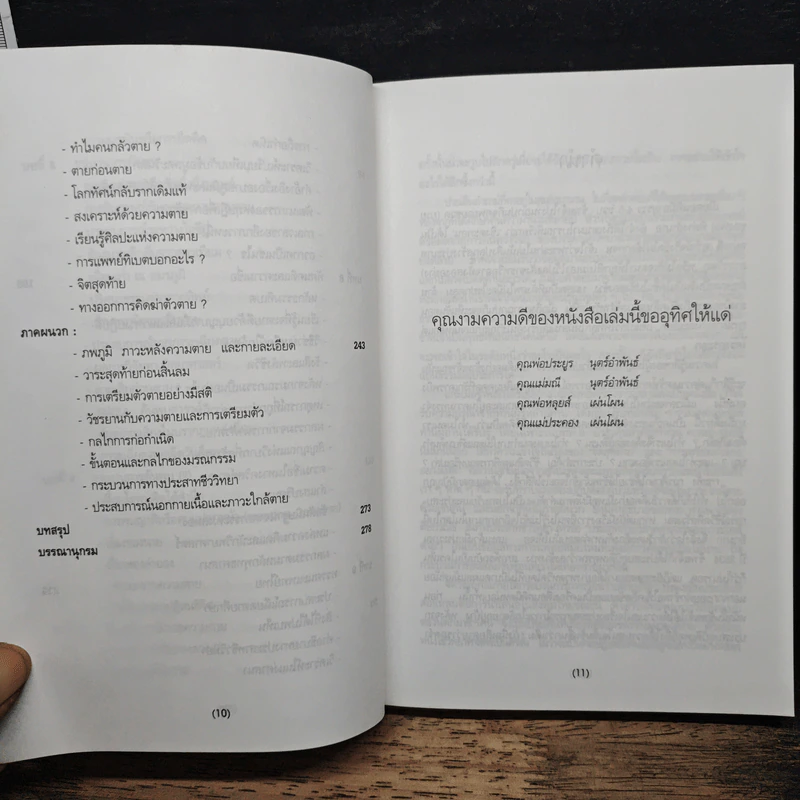 - ทำไมคนกลัวตาย ?
- ตายก่อนตาย
- โลกทัศน์กลับรากเดิมแท้
- สงเคราะห์ด้วยความตาย
- เรียนรู้ศิลปะแห่งความตาย
- การแพทย์ทิเบตบอกอะไร ?
- จิตสุดท้าย
- ทางออกการคิดฆ่าตัวตาย ?
ภาคผนวก :
- ภพภูมิ ภาวะหลังความตาย และกายละเอียด 243
- วาระสุดท้ายก่อนสิ้นลม
- การเตรียมตัวตายอย่างมีสติ
- วัชรยานกับความตายและการเตรียมตัว
- กลไกการก่อกำเนิด
- ขั้นตอนและกลไกของมรณกรรม
- กระบวนการทางประสาทชีววิทยา
- ประสบการณ์นอกกายเนื้อและภาวะใกล้ตาย
บทสรุป 273
บรรณานุกรม 278
(10)
คุณงามความดีของหนังสือเล่มนี้ขออุทิศให้แด่
คุณพ่อประยูร นุตร์อำพันธ์
คุณแม่มณี นุตร์อำพันธ์
คุณพ่อหลุยส์ เผ่นโผน
คุณแม่ประคอง เผ่นโผน
(11)